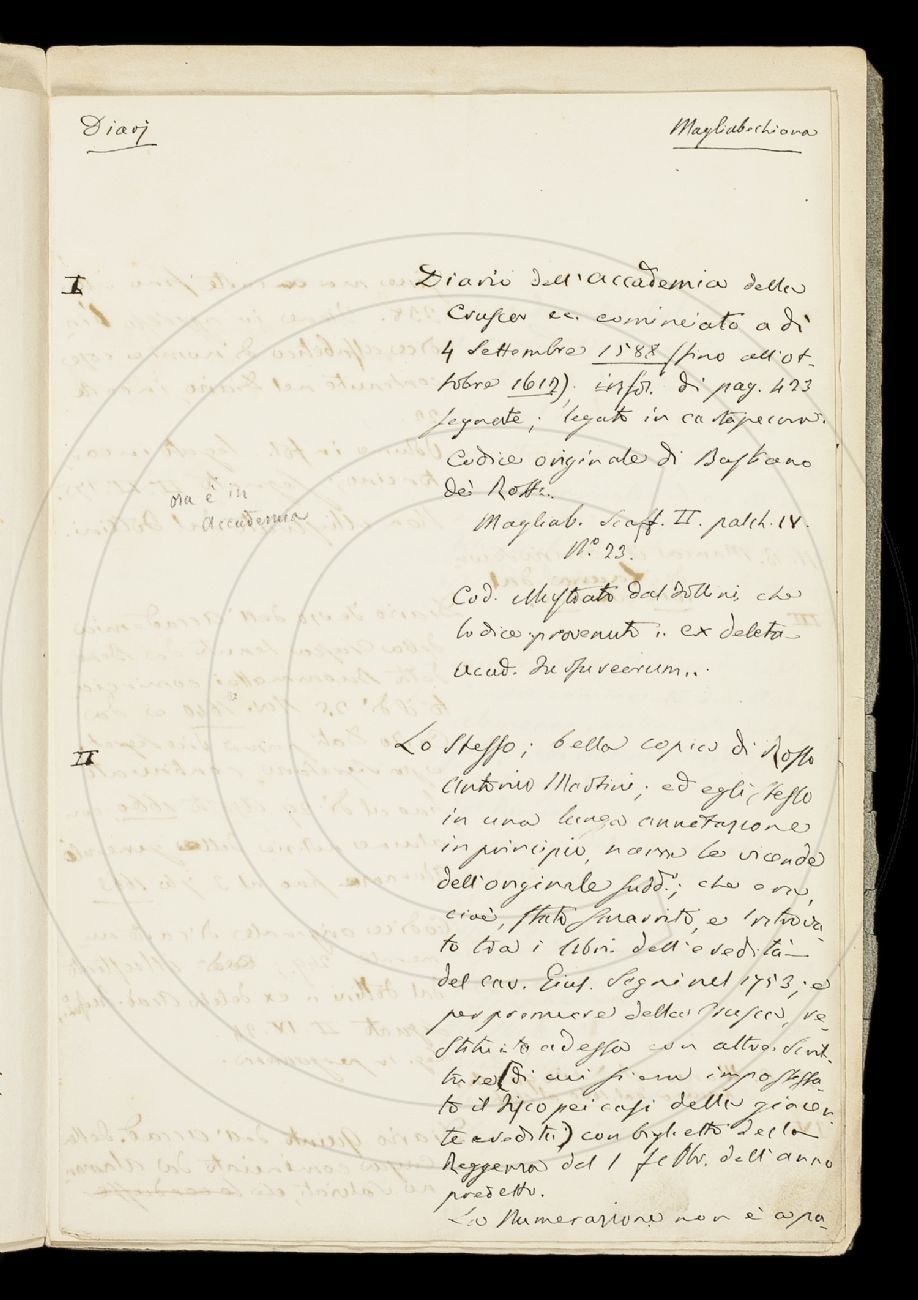 Diarj
Magliabechiana
I
Diario dell'Accademia della
Crusca ec. cominciato a dì
4 Settembre 1588 (fino all'ot-
tobre 1612), in fol. di pag. 423
segnate; legato in cartapecora.
Codice originale di Bastiano
de' Rossi.
ora è in
Accademia
Magliab. Scaff. II. palch. IV.
N.º 23.
Cod. illustrato dal Follini, che
lo dice provenuto: ex deleta
Acad. Furfureorum..
II
Lo stesso; bella copia di Rosso
Antonio Martini; ed egli stesso
in una lunga annotazione
in principio, narra le vicende
dell'originale sudd.º; che era,
cioè, stato smarrito, e ritrova-
to tra i libri dell'eredità
del cav. Giul. Segni nel 1753; e
per premure della Crusca, re-
stituito ad essa con altre scrit-
ture (di cui s'era impossessa-
to il fisco pei casi della giacen-
te eredità) con biglietto della
Reggenza del 1 febbr. dell'anno
predetto.
La numerazione non è a pa-